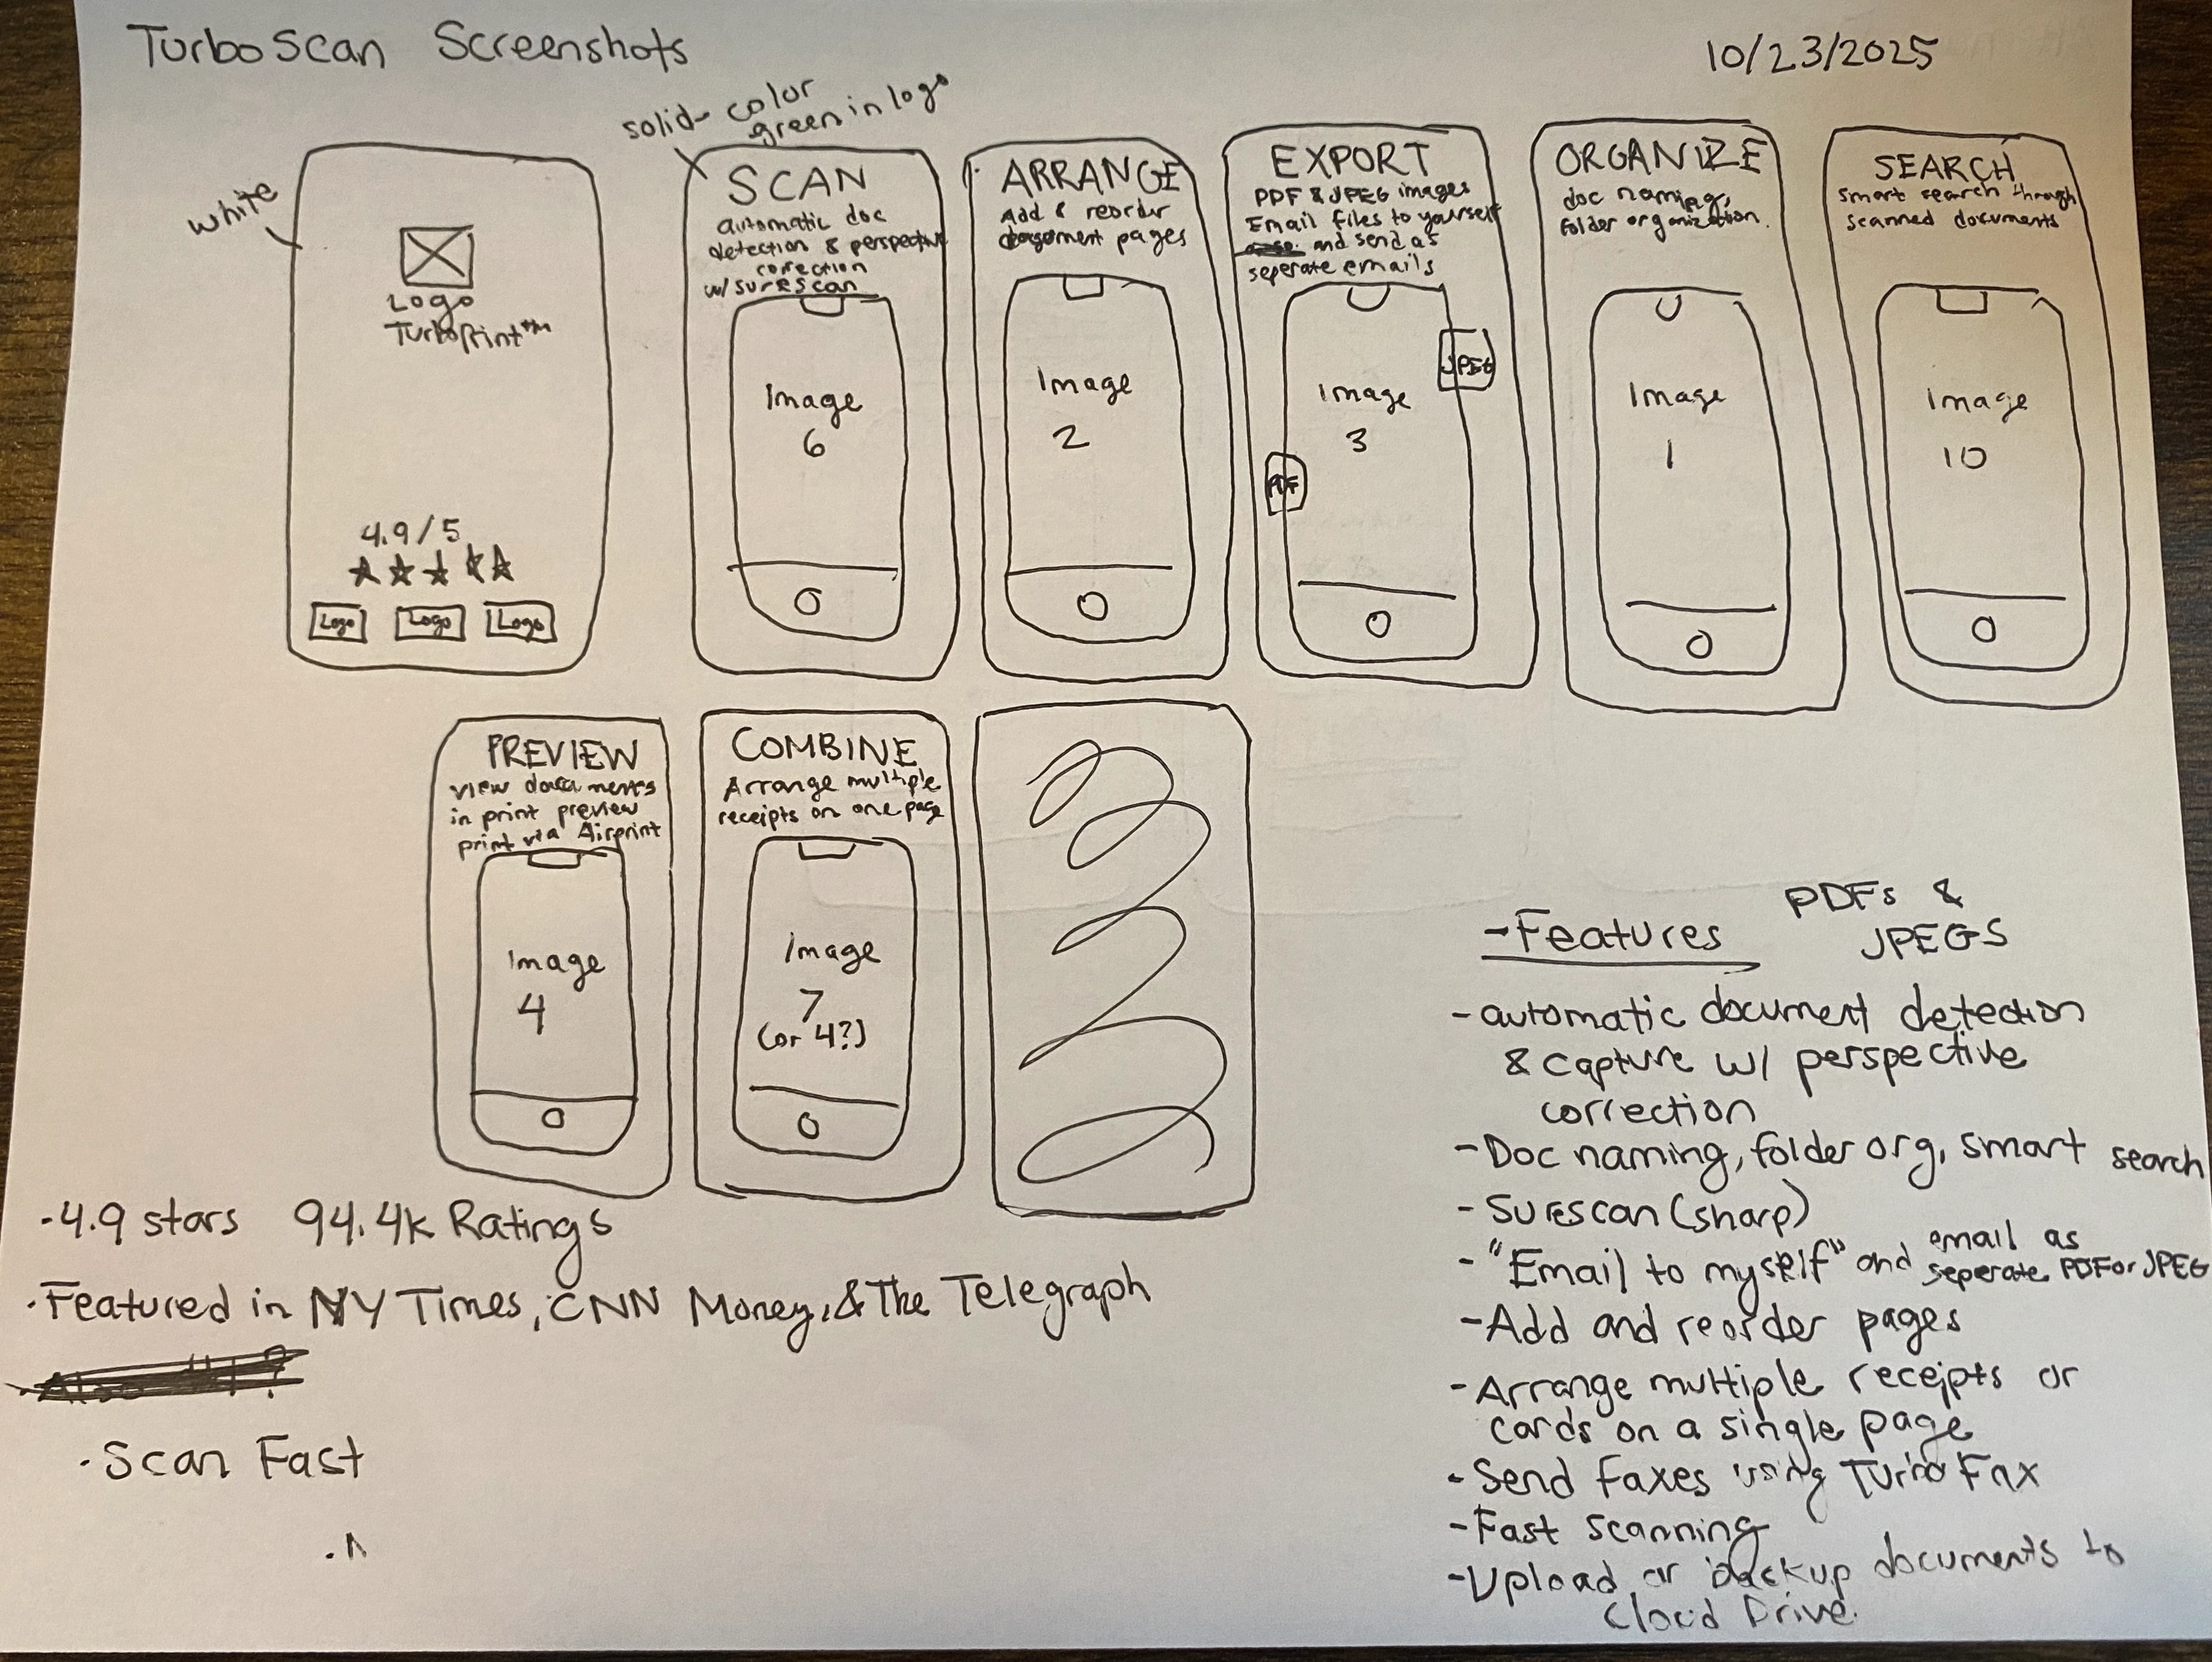 TurboScan Screenshots
10/23/2025
white
Logo
TurboPrint™
4.9/5
Logo Logo Logo
solid color
green in logo
SCAN
automatic doc
detection & perspective
correction
w/ SureScan
Image
6
ARRANGE
Add & reorder
document pages
Image
2
EXPORT
PDF & JPEG images
Email files to yourself
and send as
seperate emails
JPEG
Image
3
PDF
ORGANIZE
doc naming,
folder organization.
Image
1
SEARCH
Smart search through
scanned documents
Image
10
PREVIEW
view documents
in print preview
print via Airprint
Image
4
COMBINE
Arrange multiple
receipts on one page
Image
7
(or 4?)
·4.9 stars 94.4k Ratings
·Featured in NY Times, CNN Money, & The Telegraph
·Scan Fast
-Features
PDFs &
JPEGS
-automatic document detection
& capture w/ perspective
correction
-Doc naming, folder org, smart search
-Surescan (sharp)
-"Email to myself" and email as
seperate PDF or JPEG
-Add and reorder pages
-Arrange multiple receipts or
cards on a single page
-Send faxes using Turbo Fax
-Fast scanning
-Upload or backup documents to
Cloud Drive.